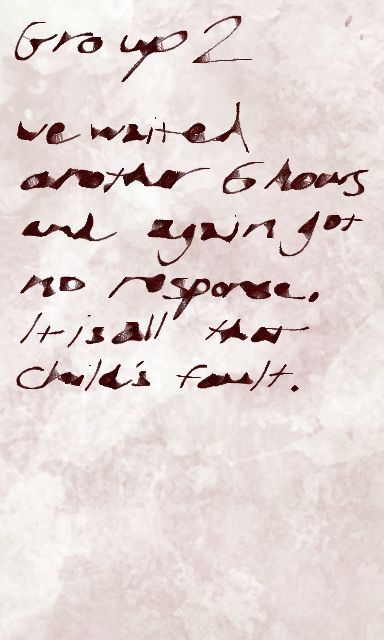 Group 2
we waited
another 6 hours
and again got
no response.
It is all that
child's fault.